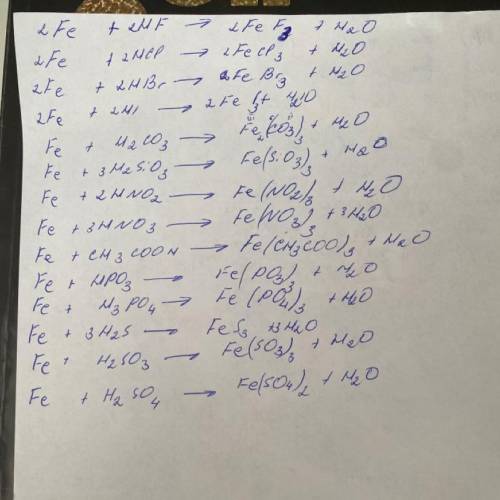 2Fe + 2HF → 2FeF3 + H2O
2Fe + 2HCl → 2FeCl3 + H2O
2Fe + 2HBr → 2FeBr3 + H2O
2Fe + 2HI → 2FeI3 + H2O
Fe + H2CO3 → Fe2(CO3)3 + H2O
Fe + 3H2SiO3 → Fe(SiO3)3 + H2O
Fe + 2HNO2 → Fe(NO2)3 + H2O
Fe + 3HNO3 → Fe(NO3)3 + 3H2O
Fe + CH3COOH → Fe(CH3COO)3 + H2O
Fe + HPO3 → Fe(PO3)3 + H2O
Fe + H3PO4 → Fe(PO4)3 + H2O
Fe + 3H2S → FeS3 + 3H2O
Fe + H2SO3 → Fe(SO3)3 + H2O
Fe + H2SO4 → Fe(SO4)2 + H2O